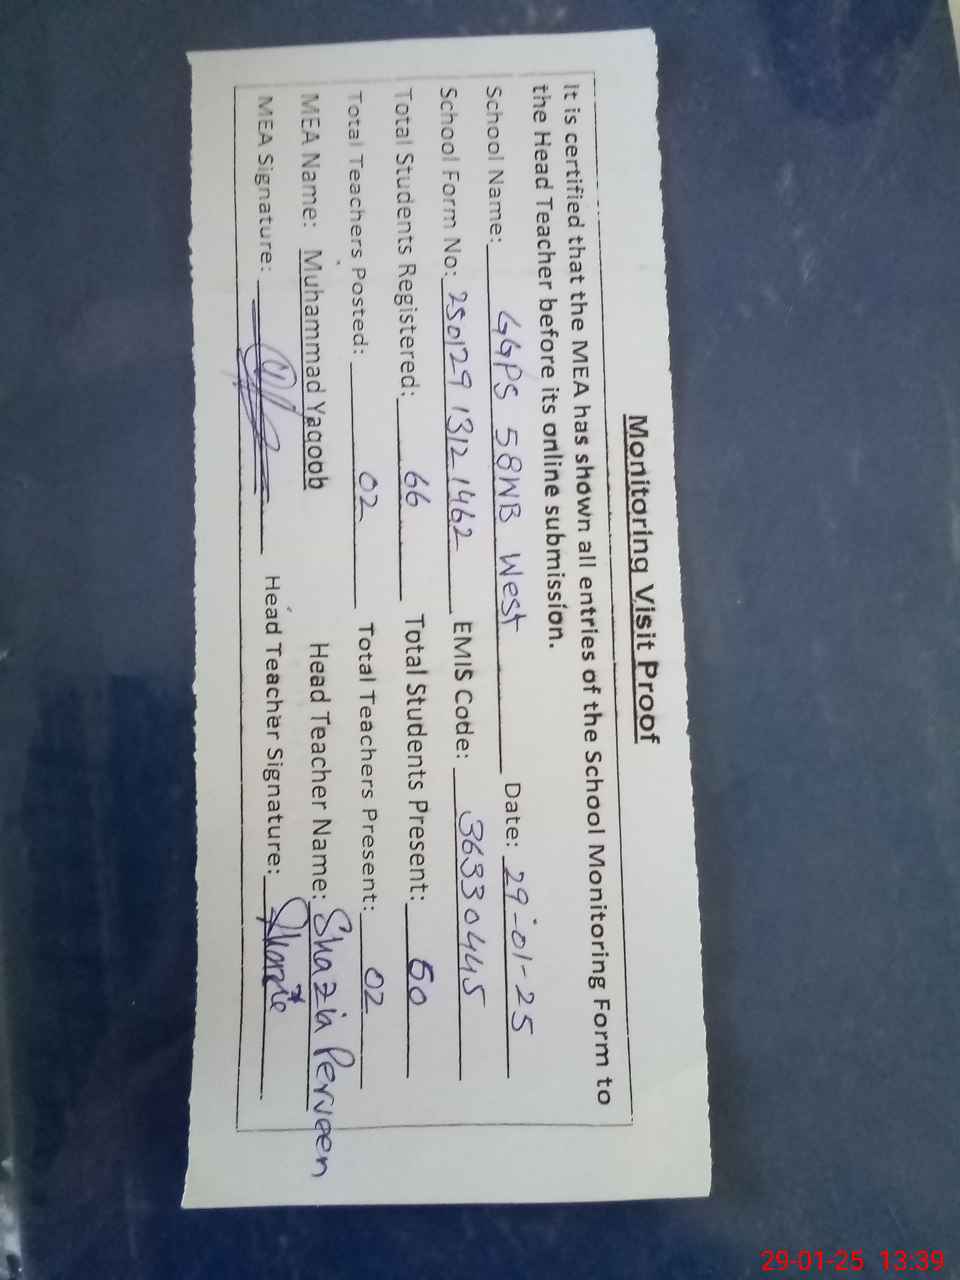 Monitoring Visit Proof
It is certified that the MEA has shown all entries of the School Monitoring Form to
the Head Teacher before its online submission.
School Name: GGPS 58WB West Date: 29-01-25
School Form No: 250129 1312 1462 EMIS Code: 36330445
Total Students Registered: 66 Total Students Present: 60
Total Teachers Posted: 02 Total Teachers Present: 02
MEA Name: Muhammad Yaqoob Head Teacher Name: Shazia Perveen
MEA Signature: Head Teacher Signature:
29-01-25 13:39